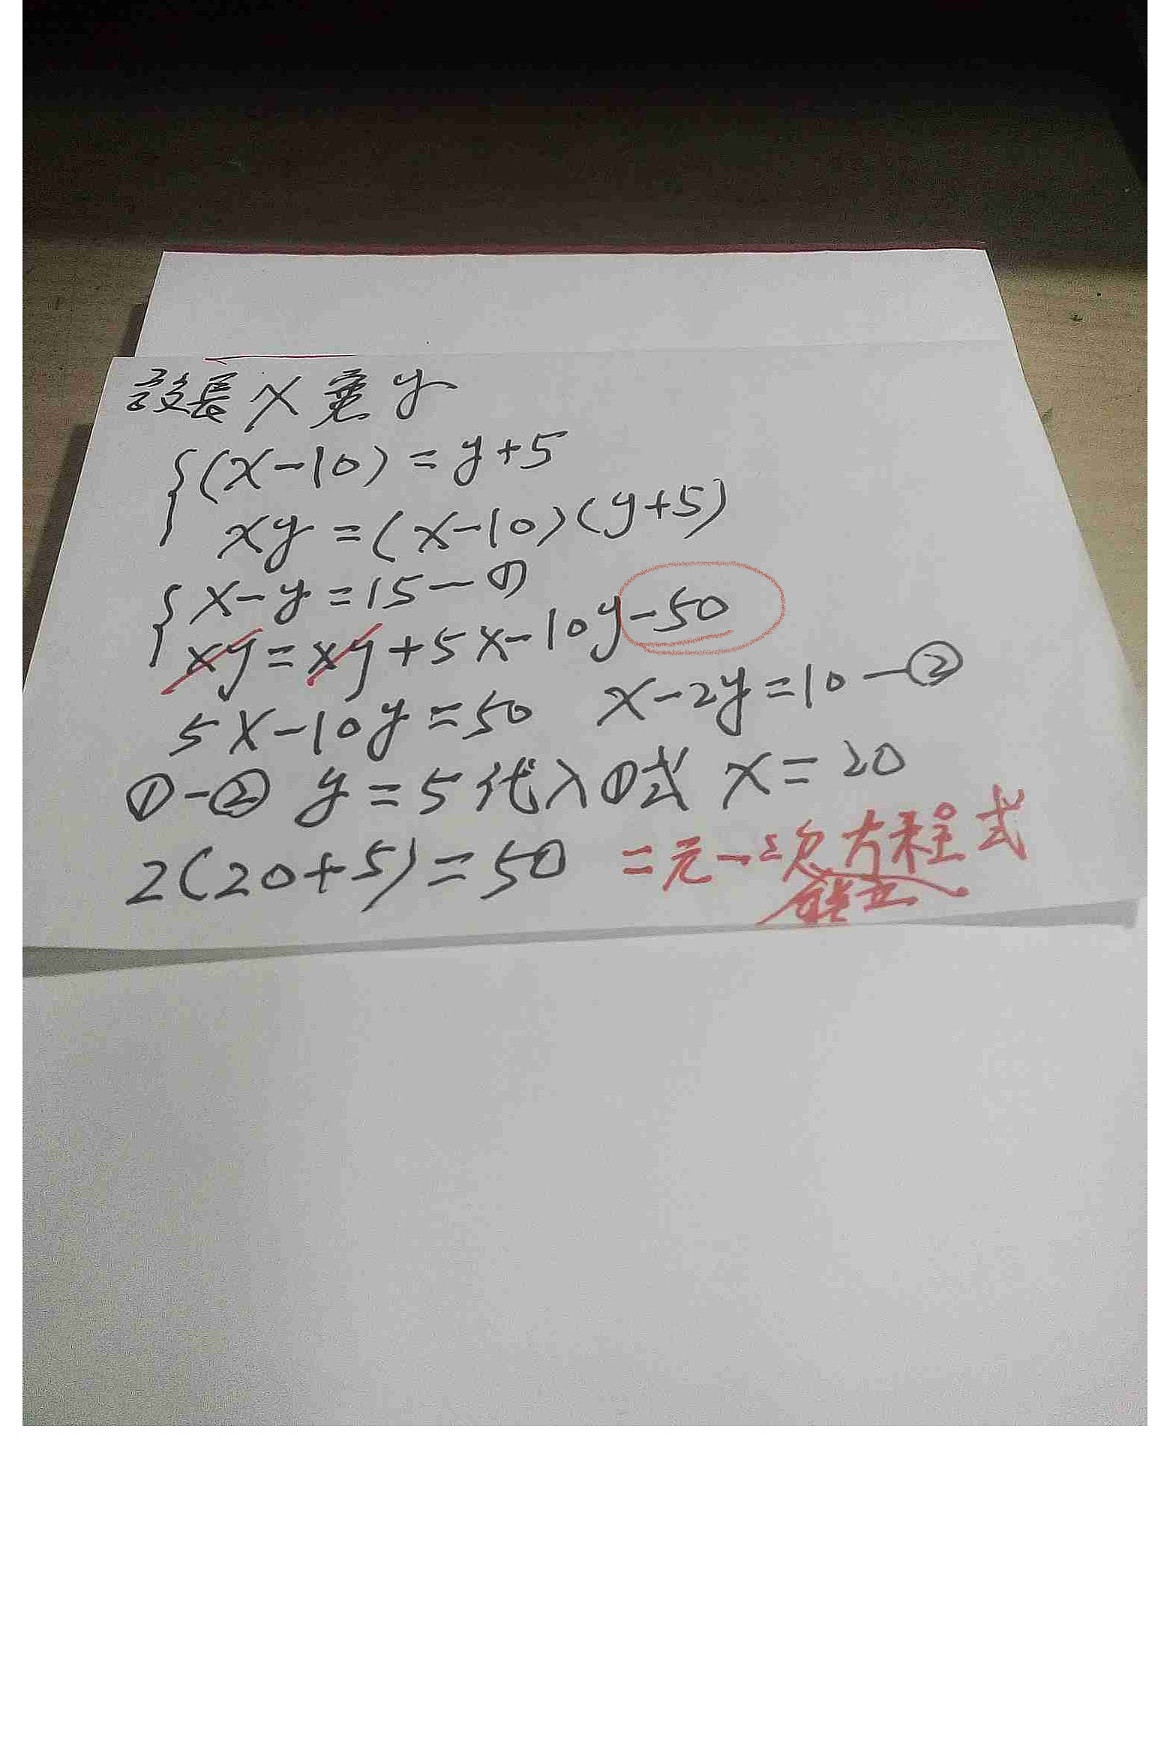 設長x寬y
{(x-10)=y+5
xy=(x-10)(y+5)
{x-y=15-①
xy=xy+5x-10y-50
5x-10y=50 x-2y=10-②
①-② y=5代入①式 x=20
2(20+5)=50 二元一次方程式
聯立